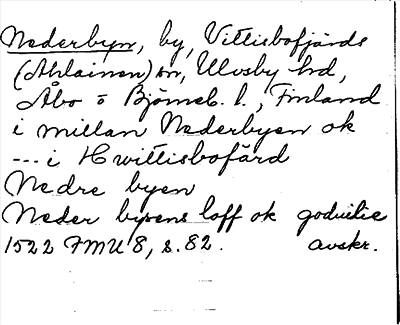 Nederbyn, by, Vittisbofjärds
(Ahlainen) sn, Ulvsby hrd,
Åbo o Björneb. l., Finland
i millan Nederbyen ok
--- i Hwittisbofärd
Nedre byen
Neder byens loff ok godwilie
1522 FMU 8, s. 82. avskr.